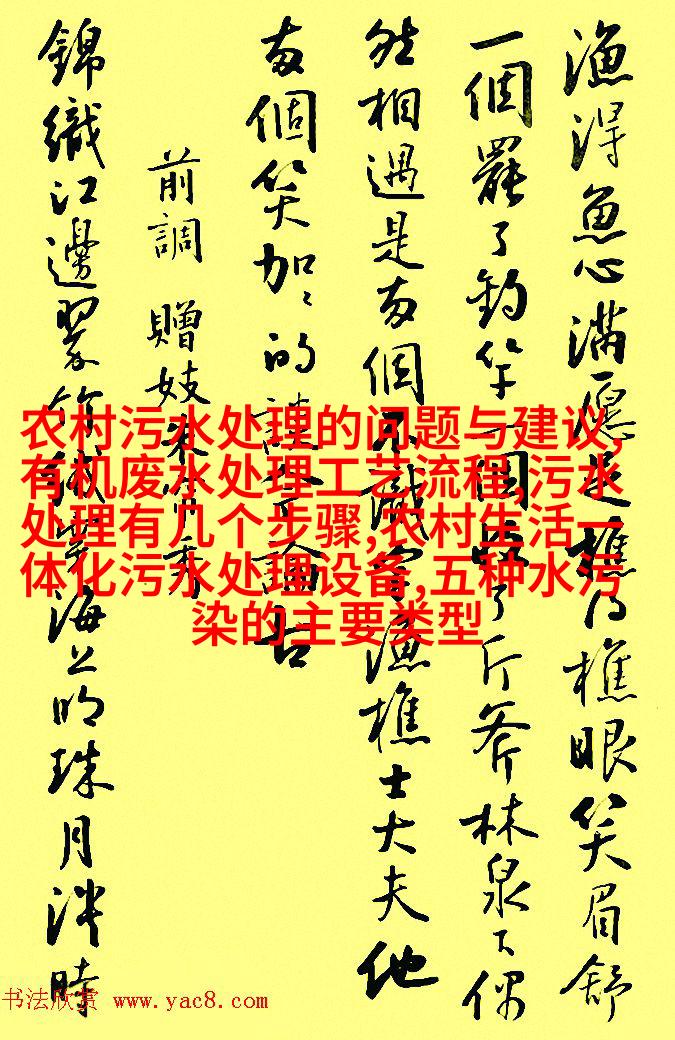 漁得魚心滿愿足樵得樵眼笑眉舒
一個罷了釣竿一個收了斤斧林泉下偶
然相遇是两個不識字漁樵士大夫他
两個笑加加的談今論古
前調 贈妓朱帘秀
錦織江邊翠竹絨穿海上明珠月淡時
农村污水处理的问题与建议,
有机废水处理工艺流程,污水
处理有几个步骤,农村生活一
体化污水处理设备,五种水污
染的主要类型
书法欣赏 www.yac8.com